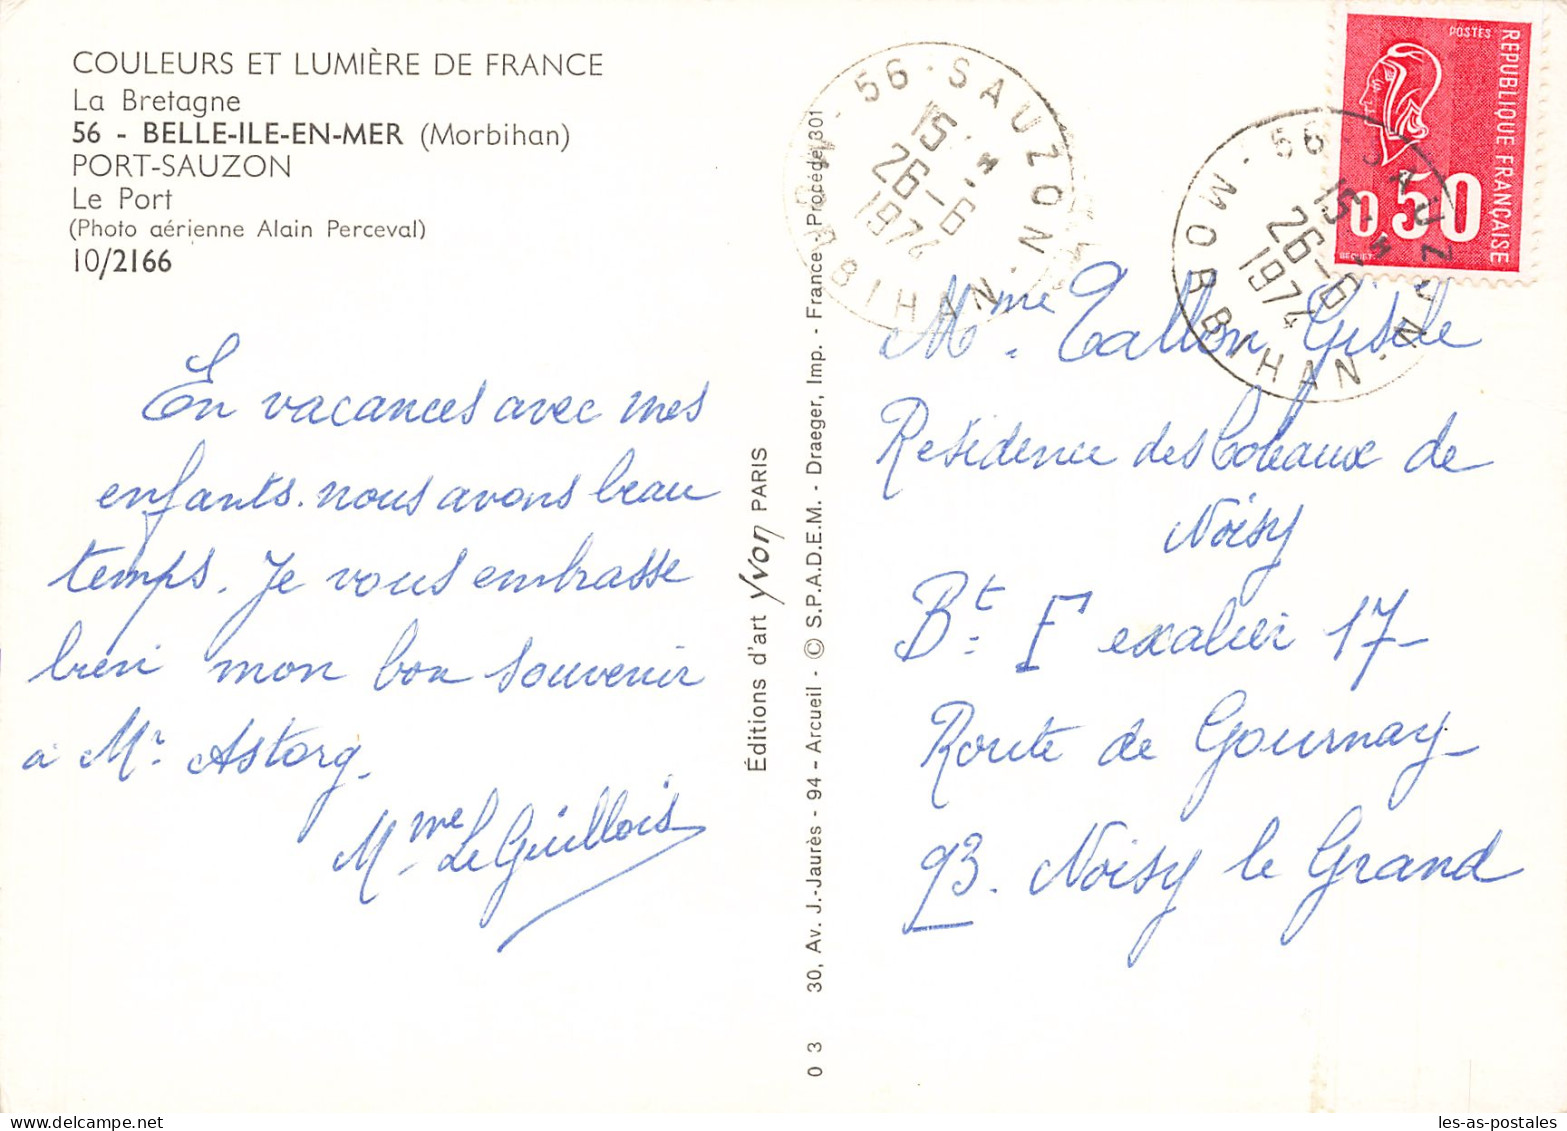 COULEURS ET LUMIÈRE DE FRANCE
La Bretagne
56 - BELLE-ILE-EN-MER (Morbihan)
PORT-SAUZON
Le Port
(Photo aérienne Alain Perceval)
10/2166
En vacances avec mes
enfants. nous avons beau
temps. Je vous embrasse
bien mon bon souvenir
à Mr. Astorg.
Mme Le Guillois
Éditions d'art Yvon PARIS
0 3 30, Av. J.-Jaurès - 94 - Arcueil - © S.P.A.D.E.M. - Draeger, Imp. - France - Procédé 301
56 - SAUZON - MORBIHAN
15
26-6
1974
56 - SAUZON - MORBIHAN
15
26-6
1974
POSTES
REPUBLIQUE FRANÇAISE
0,50
BEQUET
Mme. Tallon Gisèle
Résidence des Coteaux de
Noisy
Bt. F escalier 17
Route de Gournay
93. Noisy le Grand
les-as-postales